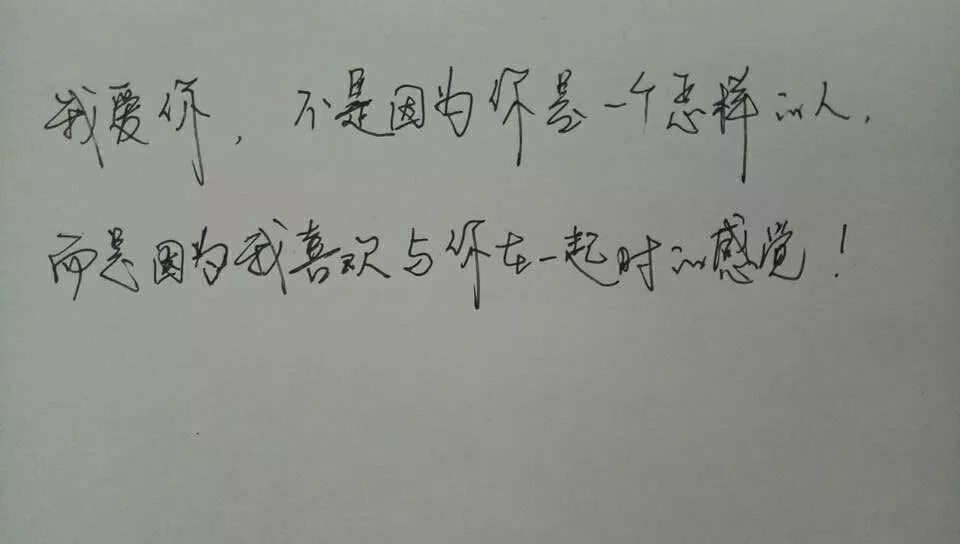 我爱你，不是因为你是一个怎样的人，
而是因为我喜欢与你在一起时的感觉！